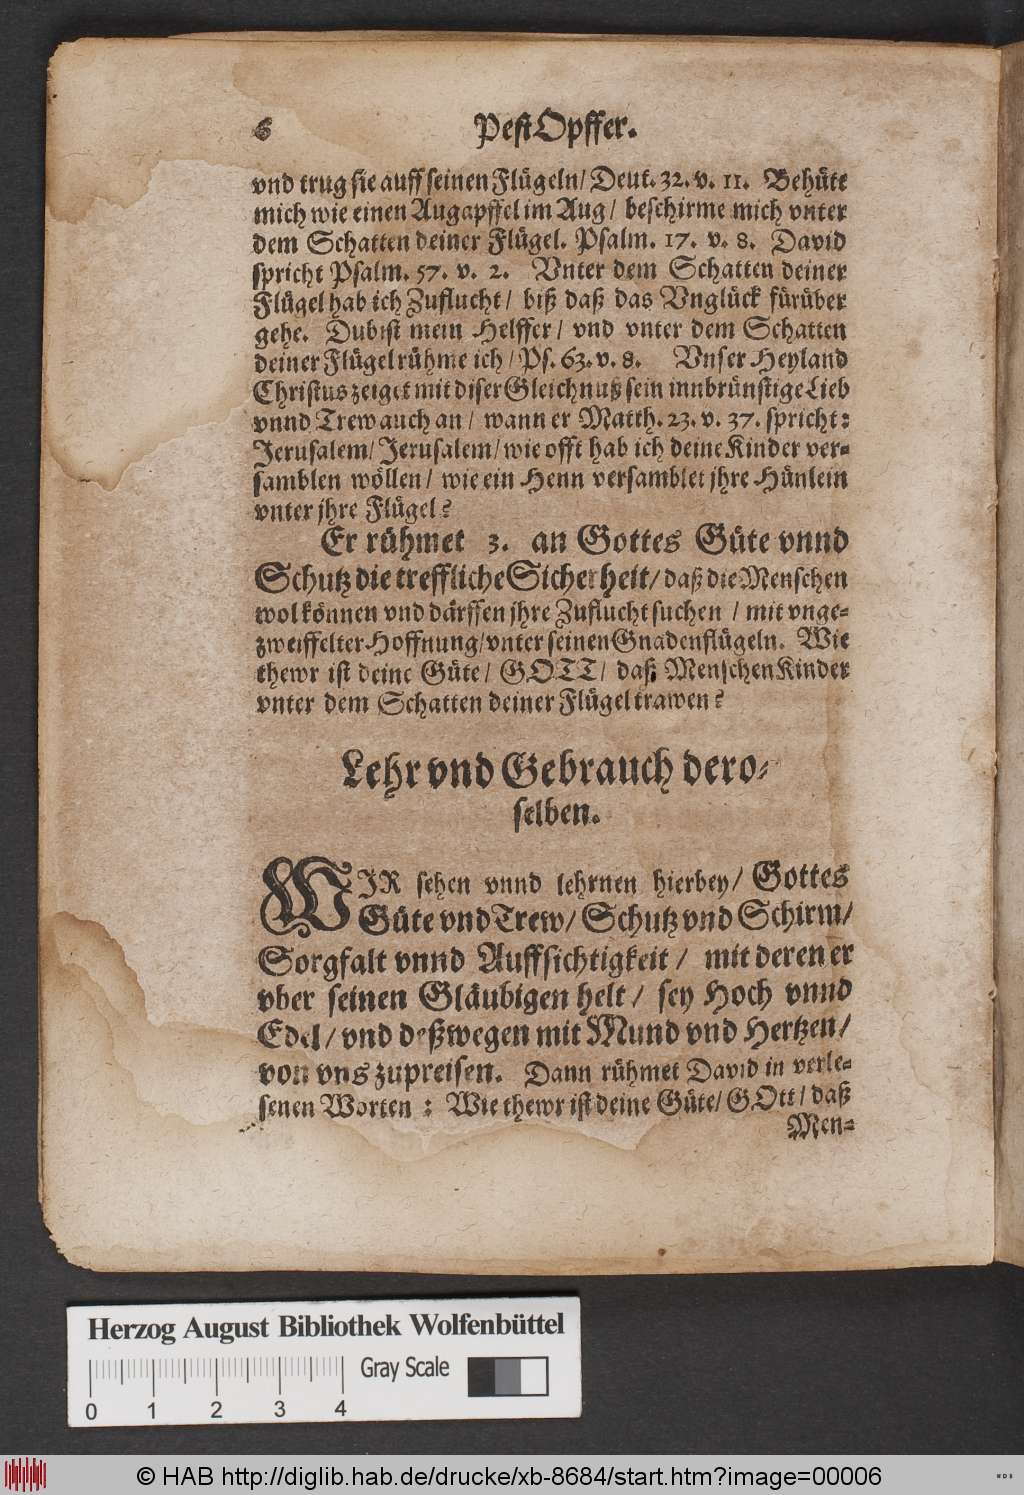 6 PestOpffer.
vnd trug sie auff seinen Flügeln/ Deut. 32. v. 11. Behüte
mich wie einen Augapffel im Aug/ beschirme mich vnter
dem Schatten deiner Flügel. Psalm. 17. v. 8. David
spricht Psalm. 57. v. 2. Vnter dem Schatten deiner
Flügel hab ich Zuflucht/ biß daß das Vnglück fürüber
gehe. Du bist mein Helffer/ vnd vnter dem Schatten
deiner Flügel rühme ich/ Ps. 63. v. 8. Vnser Heyland
Christus zeiget mit diser Gleichnuß sein innbrünstige Lieb
vnnd Trew auch an/ wann er Matth. 23. v. 37. spricht:
Jerusalem/ Jerusalem/ wie offt hab ich deine Kinder ver-
samblen wöllen/ wie ein Henn versamblet jhre Hünlein
vnter jhre Flügel?
Er rühmet 3. an Gottes Güte vnnd
Schutz die treffliche Sicherheit/ daß die Menschen
wol können vnd därffen jhre Zuflucht suchen / mit vnge-
zweiffelter Hoffnung/ vnter seinen Gnadenflügeln. Wie
thewr ist deine Güte/ GOTT/ daß MenschenKinder
vnter dem Schatten deiner Flügel trawen?
Lehr vnd Gebrauch dero-
selben.
WJR sehen vnnd lehrnen hierbey/ Gottes
Güte vnd Trew/ Schutz vnd Schirm/
Sorgfalt vnnd Auffsichtigkeit/ mit deren er
vber seinen Gläubigen helt/ sey Hoch vnnd
Edel/ vnd deßwegen mit Mund vnd Hertzen/
von vns zupreisen. Dann rühmet David in verle-
senen Worten: Wie thewr ist deine Güte/ GOtt/ daß
Men-
Herzog August Bibliothek Wolfenbüttel
Gray Scale
0 1 2 3 4
© HAB http://diglib.hab.de/drucke/xb-8684/start.htm?image=00006